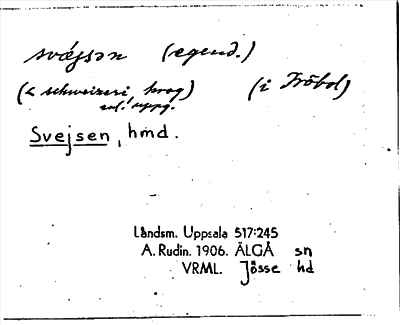 svæjsən (ægend.)
(< schweizeri, krog) (i Fröbol)
enl. uppg.
Svejsen, hmd.
Landsm. Uppsala 517:245
A. Rudin. 1906. ÄLGÅ sn
VRML. Jösse hd